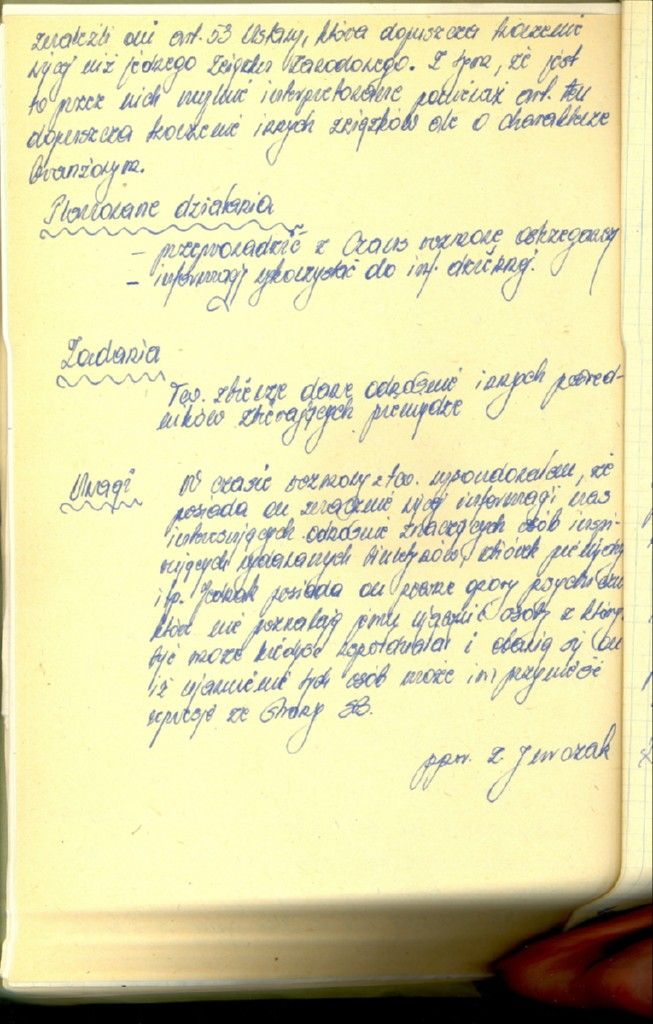 znaleźli oni art. 53 Ustawy, która dopuszcza tworzenie
więcej niż jednego Związku Zawodowego. Z tym, że jest
to przez nich mylnie interpretowane ponieważ art. ten
dopuszcza tworzenie innych związków ale o charakterze
branżowym.
Planowane działania
– przeprowadzić z rozmowę ostrzegawczą
– informację wykorzystać do inf. dziennej.
Zadania
Tw. zbierze dane odnośnie innych pośred-
ników zbierających pieniądze
Uwagi
W czasie rozmowy z tw. wywnioskowałem, że
posiada on znacznie więcej informacji nas
interesujących odnośnie znaczących osób inspi-
rujących wydawanych biuletynów, zbiórek pieniężnych
itp. Jednak posiada on pewne opory psychiczne
które nie pozwalają jemu ujawnić osoby z którymi
być może kiedyś współdziałał i obawia się on
iż ujawnienie tych osób może im przynieść
represje ze strony SB.
ppor. Z.